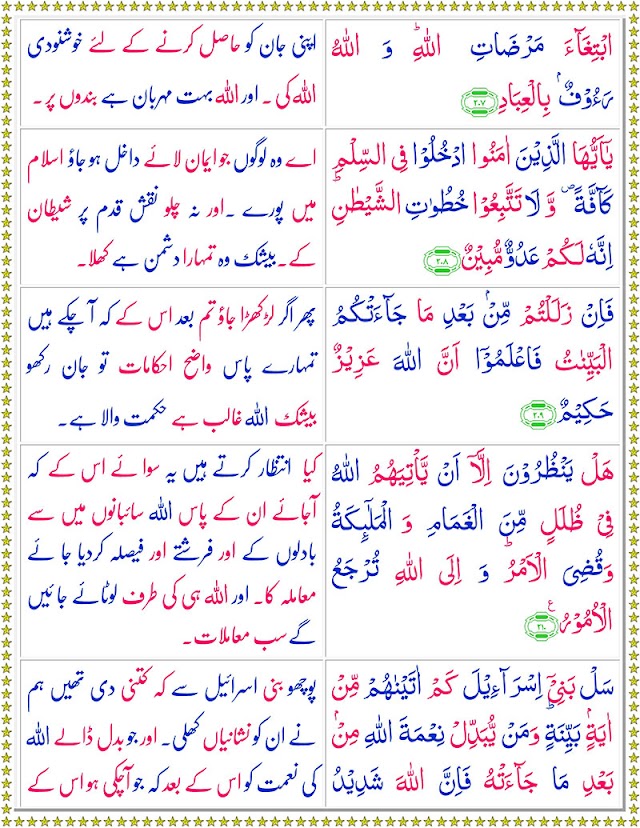 ابْتِغَآءَ مَرْضَاتِ اللّٰهِؕ وَ اللّٰهُ
رَءُوْفٌۢ بِالْعِبَادِ ۲۰۷
اپنی جان کو حاصل کرنے کے لئے خوشنودی
اللہ کی ۔ اور اللہ بہت مہربان ہے بندوں پر۔
یٰۤاَیُّهَا الَّذِیْنَ اٰمَنُوا ادْخُلُوْا فِی السِّلْمِ
كَآفَّةً۪ وَّ لَا تَتَّبِعُوْا خُطُوٰتِ الشَّیْطٰنِؕ
اِنَّهٗ لَكُمْ عَدُوٌّ مُّبِیْنٌ ۲۰۸
اے وہ لوگوں جو ایمان لائے داخل ہو جاؤ اسلام
میں پورے ۔ اور نہ چلو نقش قدم پر شیطان
کے۔ بیشک وہ تمہارا دشمن ہے کھلا۔
فَاِنْ زَلَلْتُمْ مِّنْۢ بَعْدِ مَا جَآءَتْكُمُ
الْبَیِّنٰتُ فَاعْلَمُوْۤا اَنَّ اللّٰهَ عَزِیْزٌ
حَكِیْمٌ ۲۰۹
پھر اگر لڑکھڑا جاؤ تم بعد اس کے کہ آ چکے ہیں
تمہارے پاس واضح احکامات تو جان رکھو
بیشک اللہ غالب ہے حکمت والا ہے۔
هَلْ یَنْظُرُوْنَ اِلَّاۤ اَنْ یَّاْتِیَهُمُ اللّٰهُ
فِیْ ظُلَلٍ مِّنَ الْغَمَامِ وَ الْمَلٰٓىِٕكَةُ
وَ قُضِیَ الْاَمْرُؕ وَ اِلَى اللّٰهِ تُرْجَعُ
الْاُمُوْرُ ع ۲۱۰
کیا انتظار کرتے ہیں یہ سوائے اس کے کہ
آجائے ان کے پاس اللہ سائبانوں میں سے
بادلوں کے اور فرشتے اور فیصلہ کردیا جائے
معاملہ کا۔ اور اللہ ہی کی طرف لوٹائے جائیں
گے سب معاملات۔
سَلْ بَنِیْۤ اِسْرَآءِیْلَ كَمْ اٰتَیْنٰهُمْ مِّنْ
اٰیَةٍۭ بَیِّنَةٍؕ وَ مَنْ یُّبَدِّلْ نِعْمَةَ اللّٰهِ مِنْۢ
بَعْدِ مَا جَآءَتْهُ فَاِنَّ اللّٰهَ شَدِیْدُ
پوچھو بنی اسرائیل سے کہ کتنی دی تھیں ہم
نے ان کو نشانیاں کھلی۔ اور جو بدل ڈالے اللہ
کی نعمت کو اس کے بعد کہ جو آچکی ہو اس کے